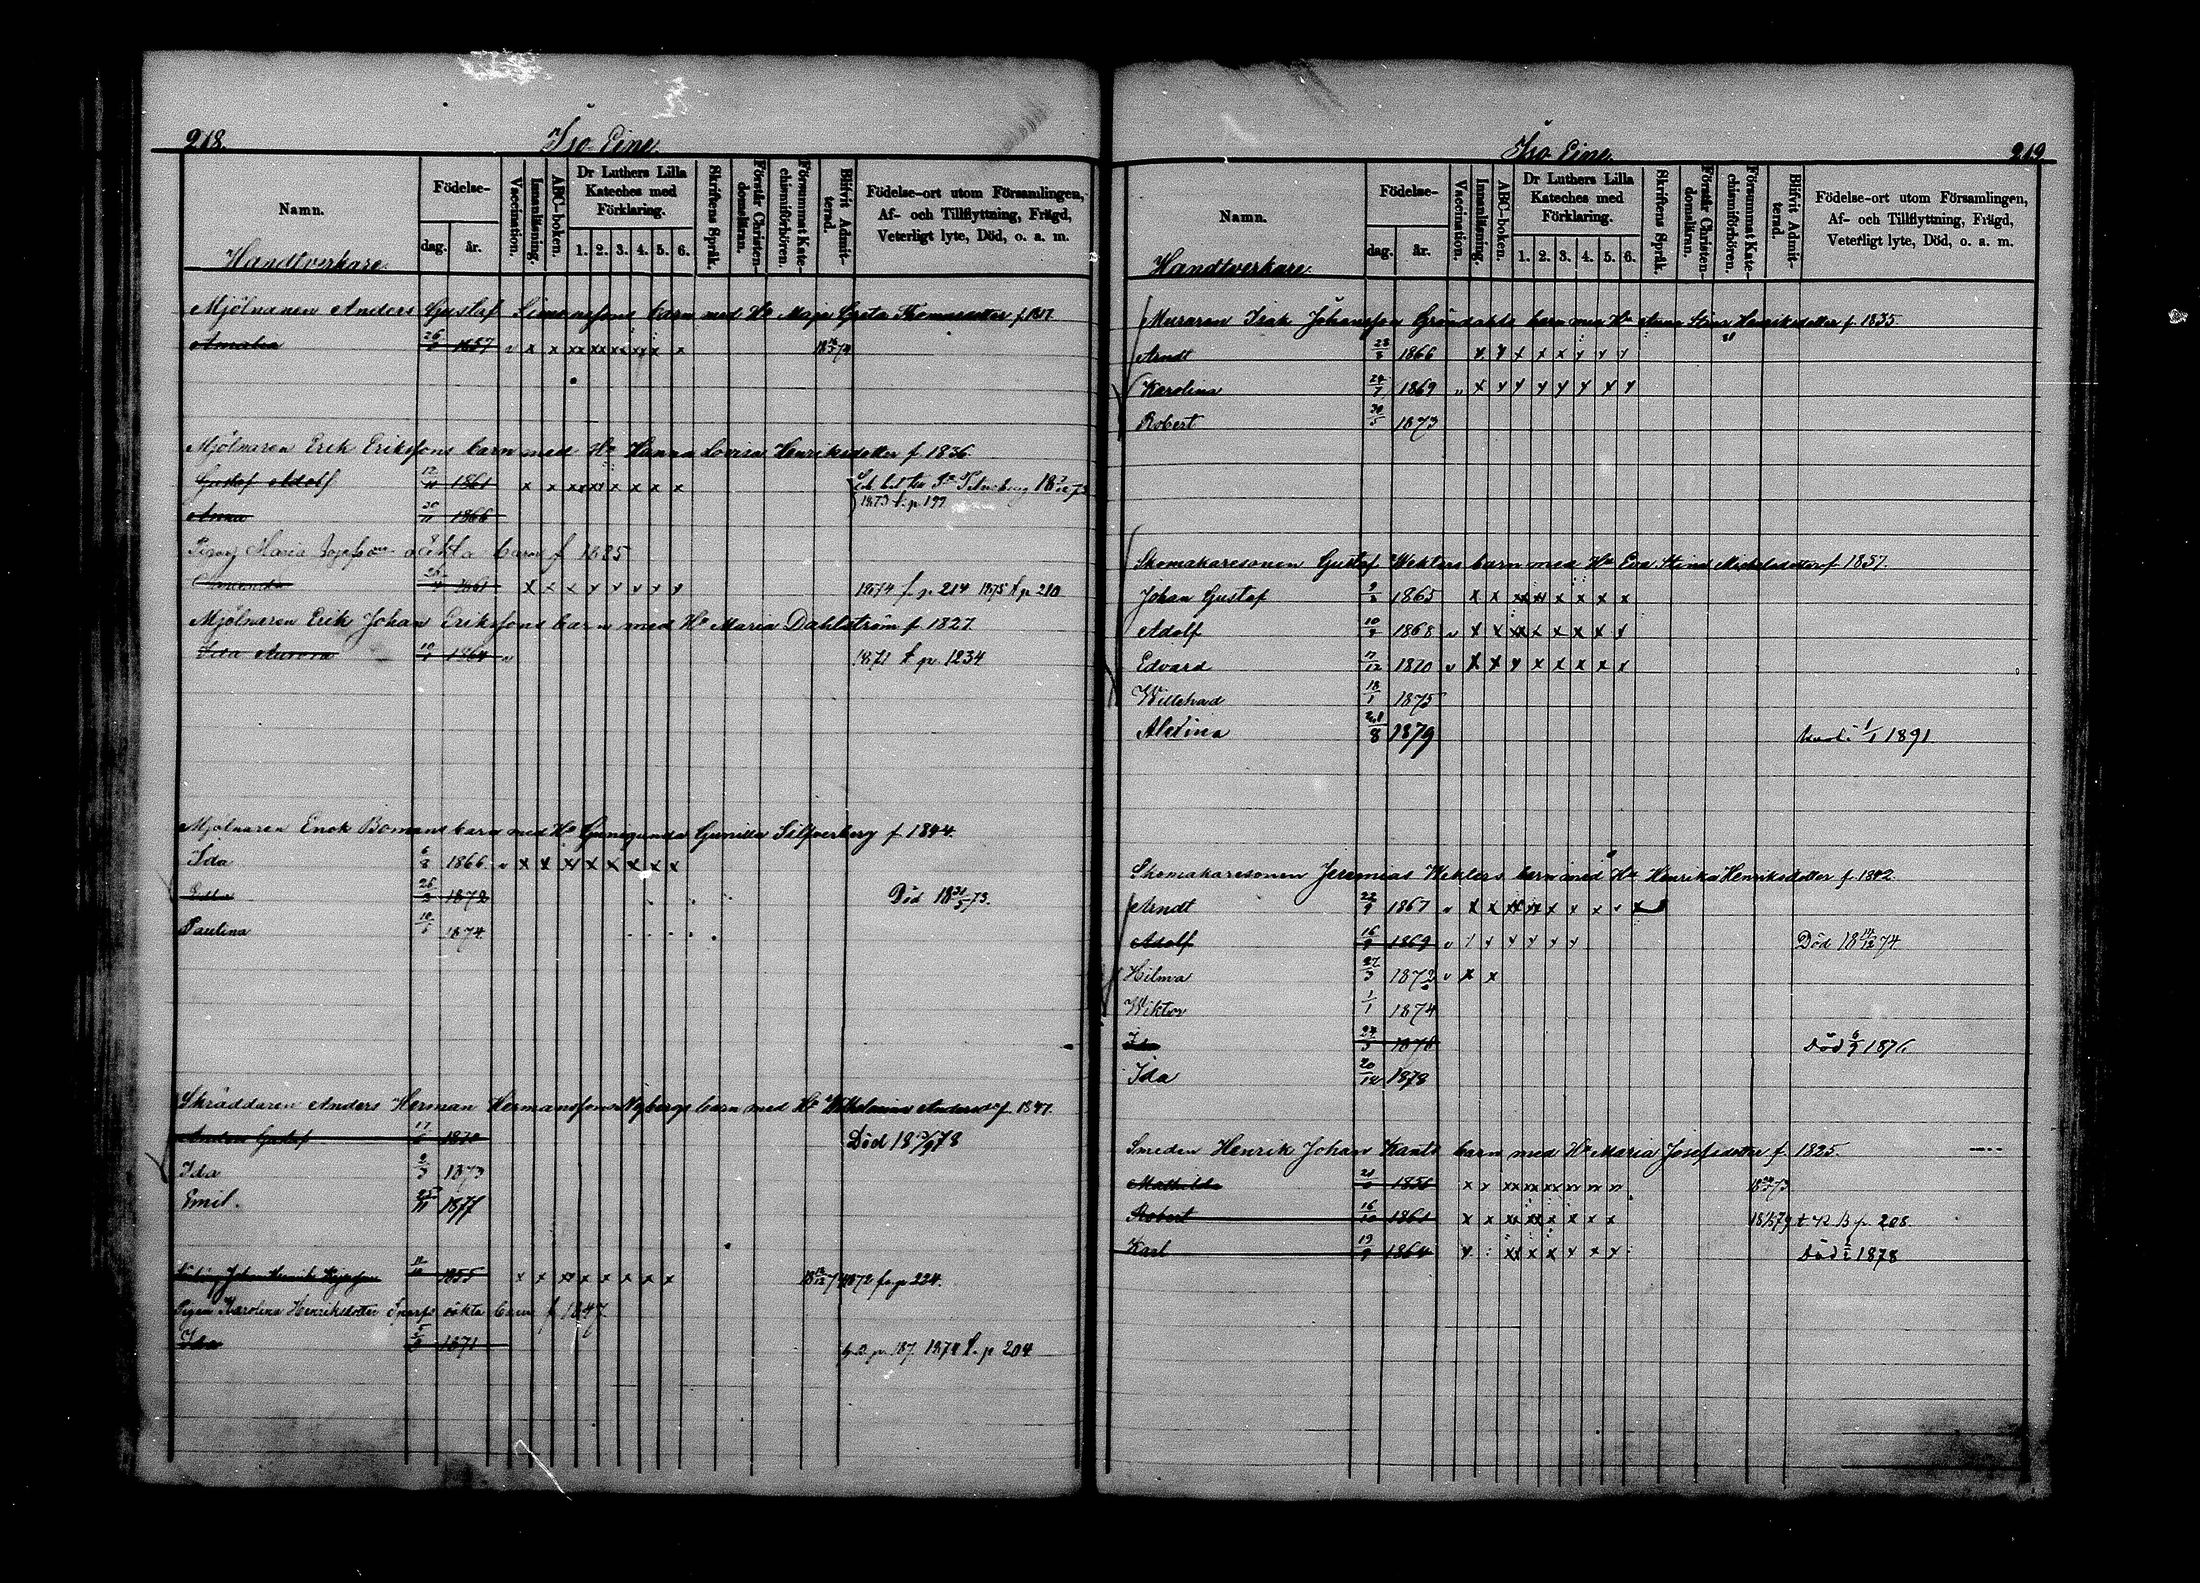 218.
Iso Eine.
Namn.
Handtverkare.
Födelse-
dag. år.
Vaccination.
Innanläsning.
ABC-boken.
Dr Luthers Lilla Kateches med Förklaring.
1. 2. 3. 4. 5. 6.
Skriftens Språk.
Förstår Christendomsläran.
Försummat Katechismiförhören.
Blifvit Admitterad.
Födelse-ort utom Församlingen,
Af- och Tillflyttning, Frägd,
Veterligt lyte, Död, o. a. m.
Mjölnaren Anders Gustaf barn med Hu Maja Greta Thomasdotter f. 1817.
Amalia 26 1857 v x x xx xx xx xx x x
Mjölnaren Erik Erikssons barn med Hu Hanna Lovisa Henriksdotter f. 1836.
Gustaf Adolf 12/10 1861 x x xx xx x x x x
Anna 30/11 1866
1873 t. p. 197
Maria oäkta barn f 1835
Amanda 1861 x x x x x x x x 1874 f p. 214 1875 t p 210
Mjölnaren Erik Johan Erikssons barn med Hu Maria Dahlström f. 1827.
Ida Aurora 1864 v 1871 t. p. 1234
Mjölnaren Enok Bomans barn med Hu Gunilla Silfverberg f. 1844.
Ida 6/8 1866 v x x x x x x x x
Edla 26/2 1872 Död 18 31/5 73.
Paulina 1874
Skräddaren Anders Herman Hermanssons Nybergs barn med Hu Wilhelmina Andersd. f. 1847.
Anders Gustaf 17 1870 Död 18 78
Ida 2/3 1873
Emil. 25/11 1877
Johan Henrik 1855 x x xx x x x x x 1872 fr. p. 224.
Pigan Karolina Henriksdotter oäkta barn f 1847
Ida 5 1871 p. 187. 1874 t. p 204
Iso Eine.
219
Namn.
Handtverkare.
Födelse-
dag. år.
Vaccination.
Innanläsning.
ABC-boken.
Dr Luthers Lilla Kateches med Förklaring.
1. 2. 3. 4. 5. 6.
Skriftens Språk.
Förstår Christendomsläran.
Försummat Katechismiförhören.
Blifvit Admitterad.
Födelse-ort utom Församlingen,
Af- och Tillflyttning, Frägd,
Veterligt lyte, Död, o. a. m.
Muraren Isak Johansson Gröndahls barn med Hu Anna Stina Henriksdotter f. 1835.
Arndt 28/8 1866 x x x x x x x x
Karolina 24/7 1869 v x x x x x x x x
Robert 30/5 1873
Skomakaresonen Gustaf Weklers barn med Hu Eva Stina Michelsdotter f. 1837.
Johan Gustaf 1865 x x xx xx x x x x
Adolf 10 1868 v x x xx x x x x x
Edvard 17/12 1870 v x x x x x x x x
Willehad 18/1 1875
Alexina 21/8 1879 1/1 1891
Skomakaresonen Jeremias Weklers barn med Hu Henrika Henriksdotter f. 1842.
Arndt 22/9 1867 v x x xx xx x x x x x
Adolf 16 1869 v x x x x x x Död 18 14/12 74.
Hilma 27/3 1872 v x x
Wiktor 1/1 1874
Ida 24/3 1876 Död 6/7 1876.
Ida 20/12 1878
Smeden Henrik Johan Kants barn med Hu Maria Josefsdotter f. 1825.
Mathilda 1856
Robert 16/10 1861 x x xx xx x x x x t. p. 208.
Karl 19/9 1864 Död 1878